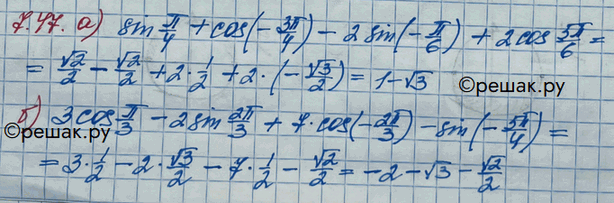 7.47. а) sin π/4 + cos(-3π/4) - 2 sin(-π/6) + 2 cos 5π/6 =
= √2/2 - √2/2 + 2·1/2 + 2·(-√3/2) = 1-√3
©решак.ру
©решак.ру
б) 3 cos π/3 - 2 sin 2π/3 + 7·cos(-2π/3) - sin(-5π/4) =
= 3·1/2 - 2·√3/2 - 7·1/2 - √2/2 = -2-√3-√2/2